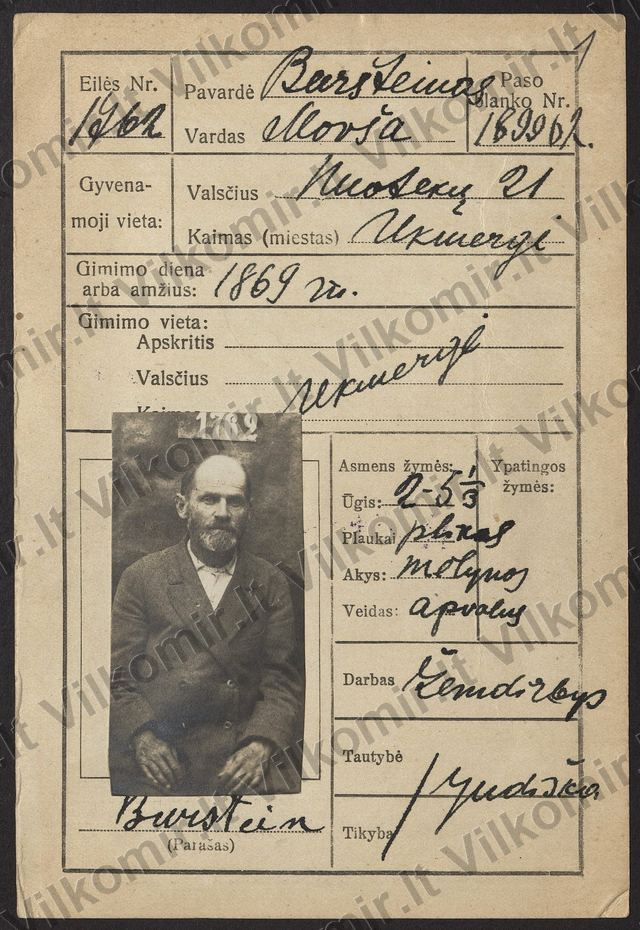 Eilės Nr.
1762
Pavardė Baršteinas
Vardas Movša
Paso
blanko Nr.
189962.
Gyvena-
moji vieta:
Valsčius Nuotekų 21
Kaimas (miestas) Ukmergė
Gimimo diena
arba amžius: 1869 m.
Gimimo vieta:
Apskritis
Valsčius
Ukmergė
1762
Asmens žymės:
Ūgis: 2-5 1/3
Plaukai plikas
Akys: mėlynos
Veidas: apvalus
Ypatingos
žymės:
Darbas Žemdirbys
Tautybė
Tikyba
Judiška
Burstein
(Parašas)
Vilkomir.lt